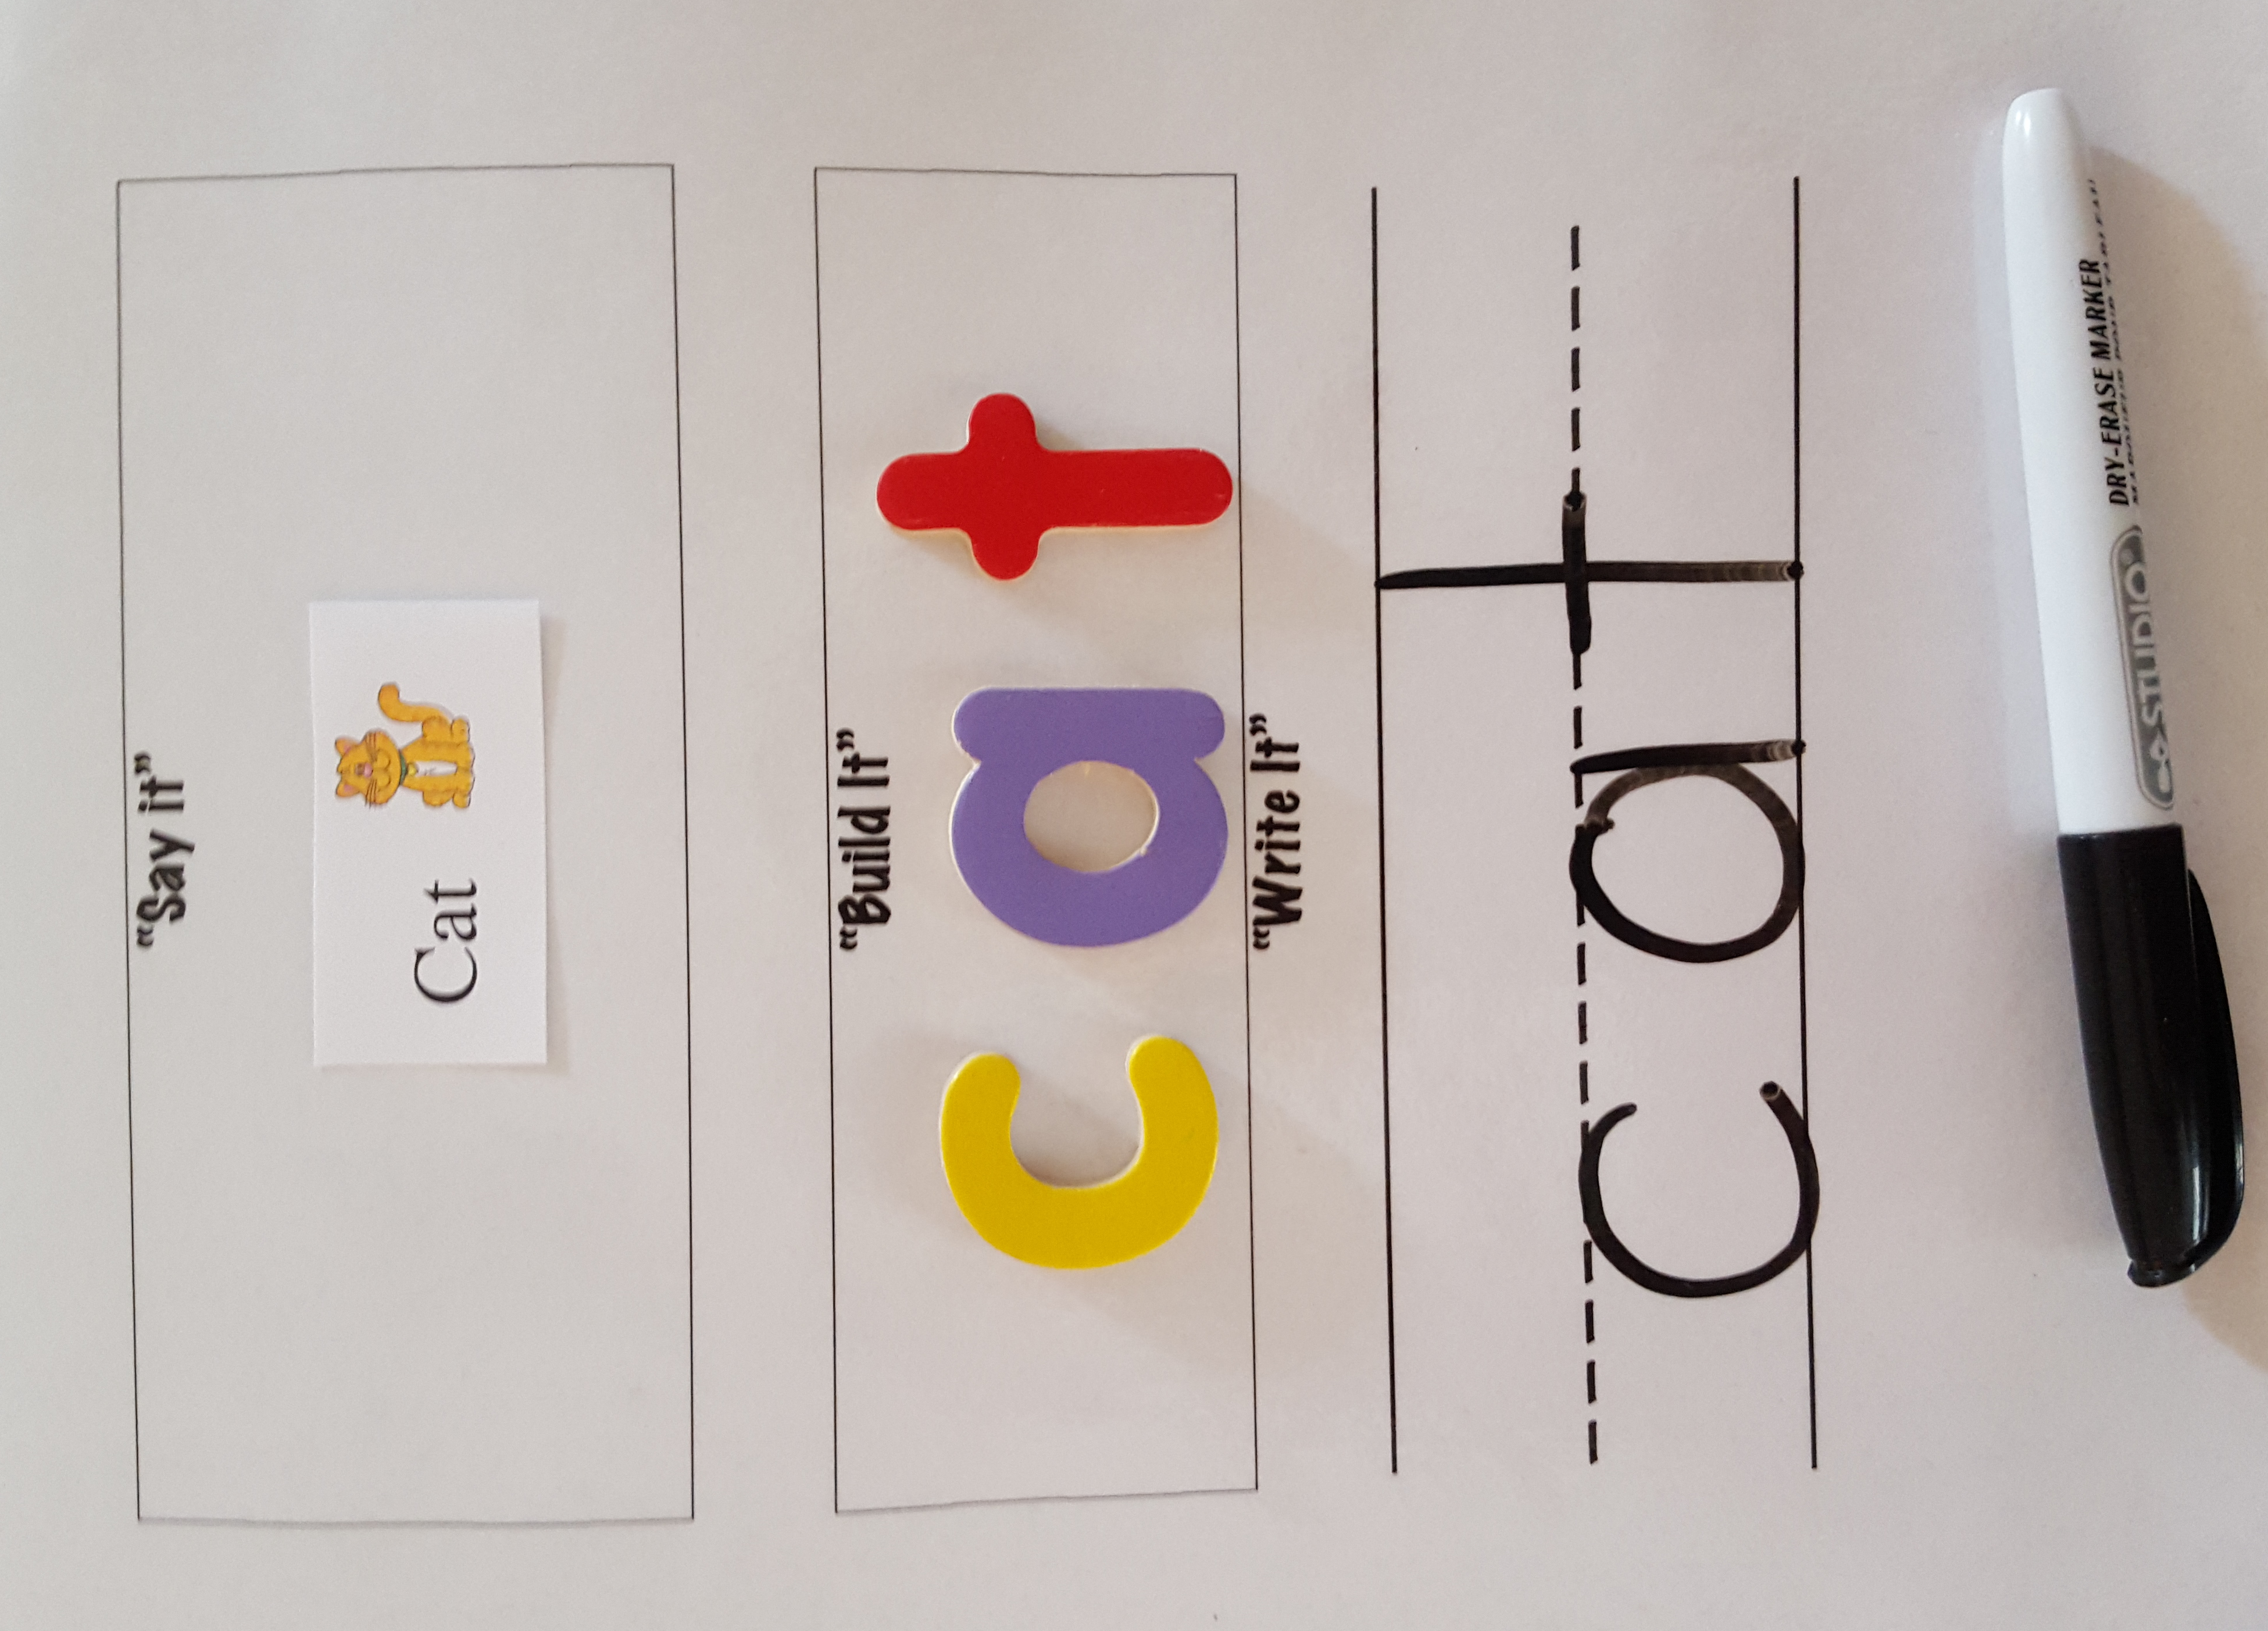 “Say it”
Cat
“Build It”
cat
“Write It”
cat
DRY-ERASE MARKER